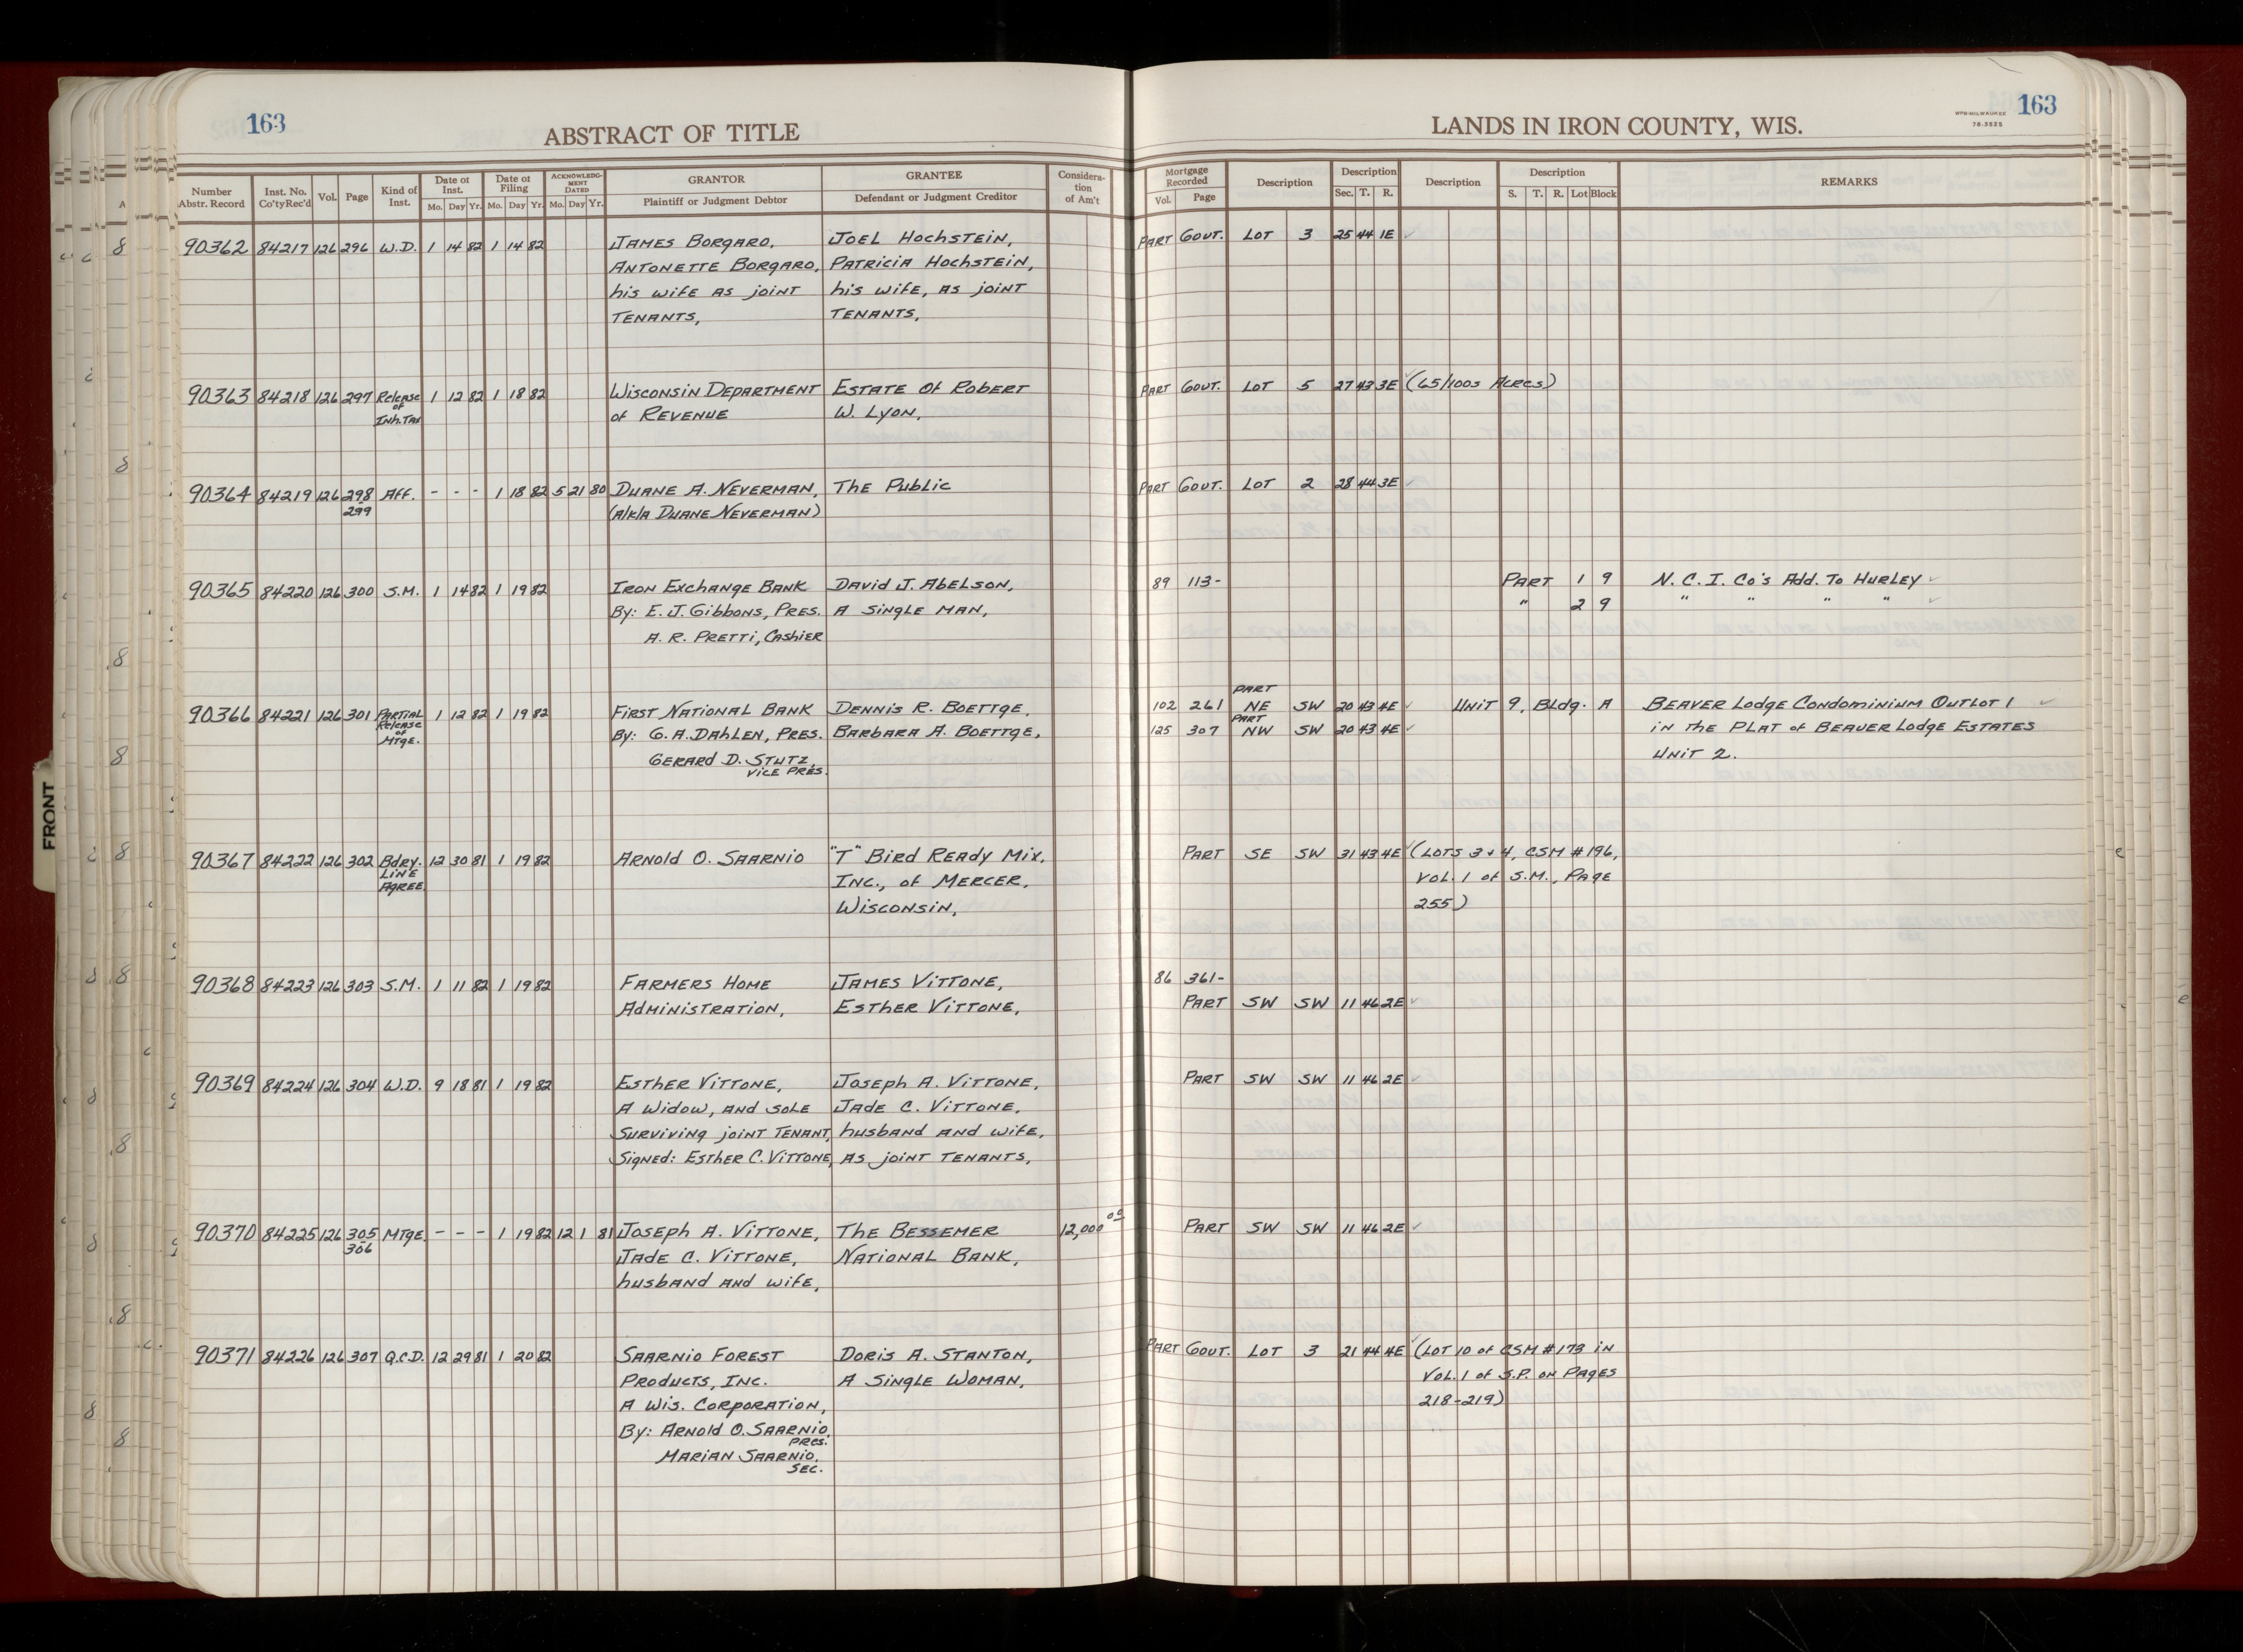 163
ABSTRACT OF TITLE
Number Abstr. Record
Inst. No. Co'ty Rec'd
Vol.
Page
Kind of Inst.
Date of Inst.
Mo. Day Yr.
Date of Filing
Mo. Day Yr.
ACKNOWLEDGMENT DATED
Mo. Day Yr.
GRANTOR
Plaintiff or Judgment Debtor
GRANTEE
Defendant or Judgment Creditor
Consideration of Am't
LANDS IN IRON COUNTY, WIS.
WPH-MILWAUKEE
78-3525
163
Mortgage Recorded
Vol. Page
Description
Description
Sec. T. R.
Description
Description
S. T. R. Lot Block
REMARKS
90362 84217 126 296 W.D. 1 14 82 1 14 82 James Borgaro, Joel Hochstein, Part Gout. Lot 3 25 44 1E ✓
Antonette Borgaro, Patricia Hochstein,
his wife as joint his wife, as joint
tenants, tenants,
90363 84218 126 297 Release 1 12 82 1 18 82 Wisconsin Department Estate of Robert Part Gout. Lot 5 27 43 3E ✓ (65/100s Acres)
of Inh. Tax of Revenue W. Lyon,
90364 84219 126 298 Aff. - - - 1 18 82 5 21 80 Duane A. Neverman, The Public Part Gout. Lot 2 28 44 3E ✓
299 (a/k/a Duane Neverman)
90365 84220 126 300 S.M. 1 14 82 1 19 82 Iron Exchange Bank David J. Abelson, 89 113- Part 1 9 N. C. I. Co's Add. To Hurley ✓
By: E. J. Gibbons, Pres. A Single Man, " 2 9 " " " " ✓
A. R. Pretti, Cashier
90366 84221 126 301 Partial 1 12 82 1 19 82 First National Bank Dennis R. Boettge, 102 261 Part NE SW 20 43 4E ✓ Unit 9, Bldg. A Beaver Lodge Condominium Outlot 1 ✓
Release of Mtge. By: G. A. Dahlen, Pres. Barbara A. Boettge, 125 307 Part NW SW 20 43 4E ✓ in the Plat of Beaver Lodge Estates
Gerard D. Stutz, Vice Pres. Unit 2.
90367 84222 126 302 Bdry. 12 30 81 1 19 82 Arnold O. Saarnio "T" Bird Ready Mix, Part SE SW 31 43 4E ✓ (Lots 3 & 4, CSM #196,
Line Agree. Inc., of Mercer, Vol. 1 of S.M., Page
Wisconsin, 255)
90368 84223 126 303 S.M. 1 11 82 1 19 82 Farmers Home James Vittone, 86 361-
Administration, Esther Vittone, Part SW SW 11 46 2E ✓
90369 84224 126 304 W.D. 9 18 81 1 19 82 Esther Vittone, Joseph A. Vittone, Part SW SW 11 46 2E ✓
A Widow, and sole Jade C. Vittone,
Surviving joint Tenant, husband and wife,
Signed: Esther C. Vittone, as joint tenants,
90370 84225 126 305 Mtge. - - - 1 19 82 12 1 81 Joseph A. Vittone, The Bessemer 12,000 00 Part SW SW 11 46 2E ✓
306 Jade C. Vittone, National Bank,
husband and wife,
90371 84226 126 307 Q.C.D. 12 29 81 1 20 82 Saarnio Forest Doris A. Stanton, Part Gout. Lot 3 21 44 4E ✓ (Lot 10 of CSM #173 in
Products, Inc. A Single Woman, Vol. 1 of S.P. on Pages
A Wis. Corporation, 218-219)
By: Arnold O. Saarnio, Pres.
Marian Saarnio, Sec.
FRONT